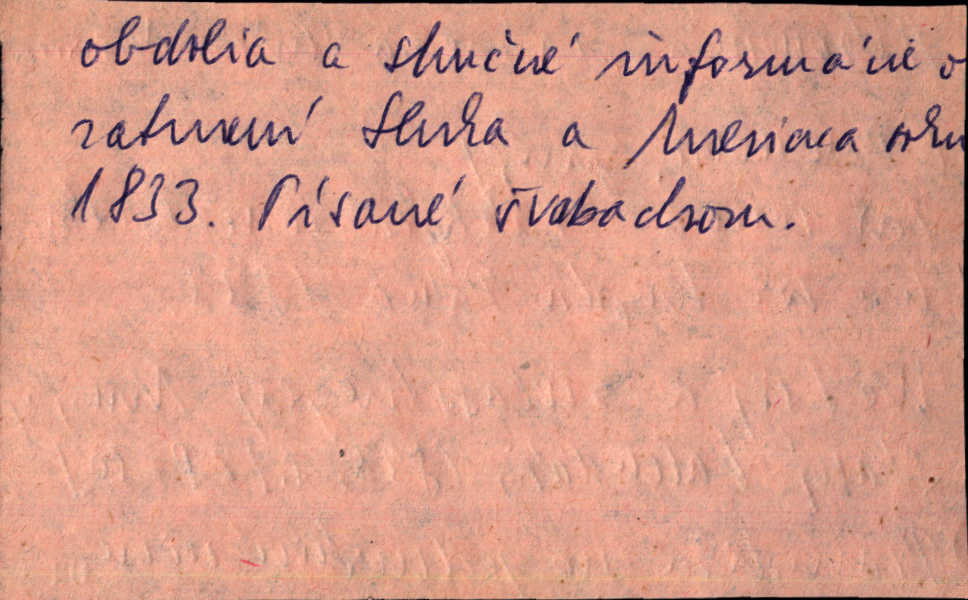 obdobia a stručné informácie o
zatmení Slnka a Mesiaca roku
1833. Písané švabachom.